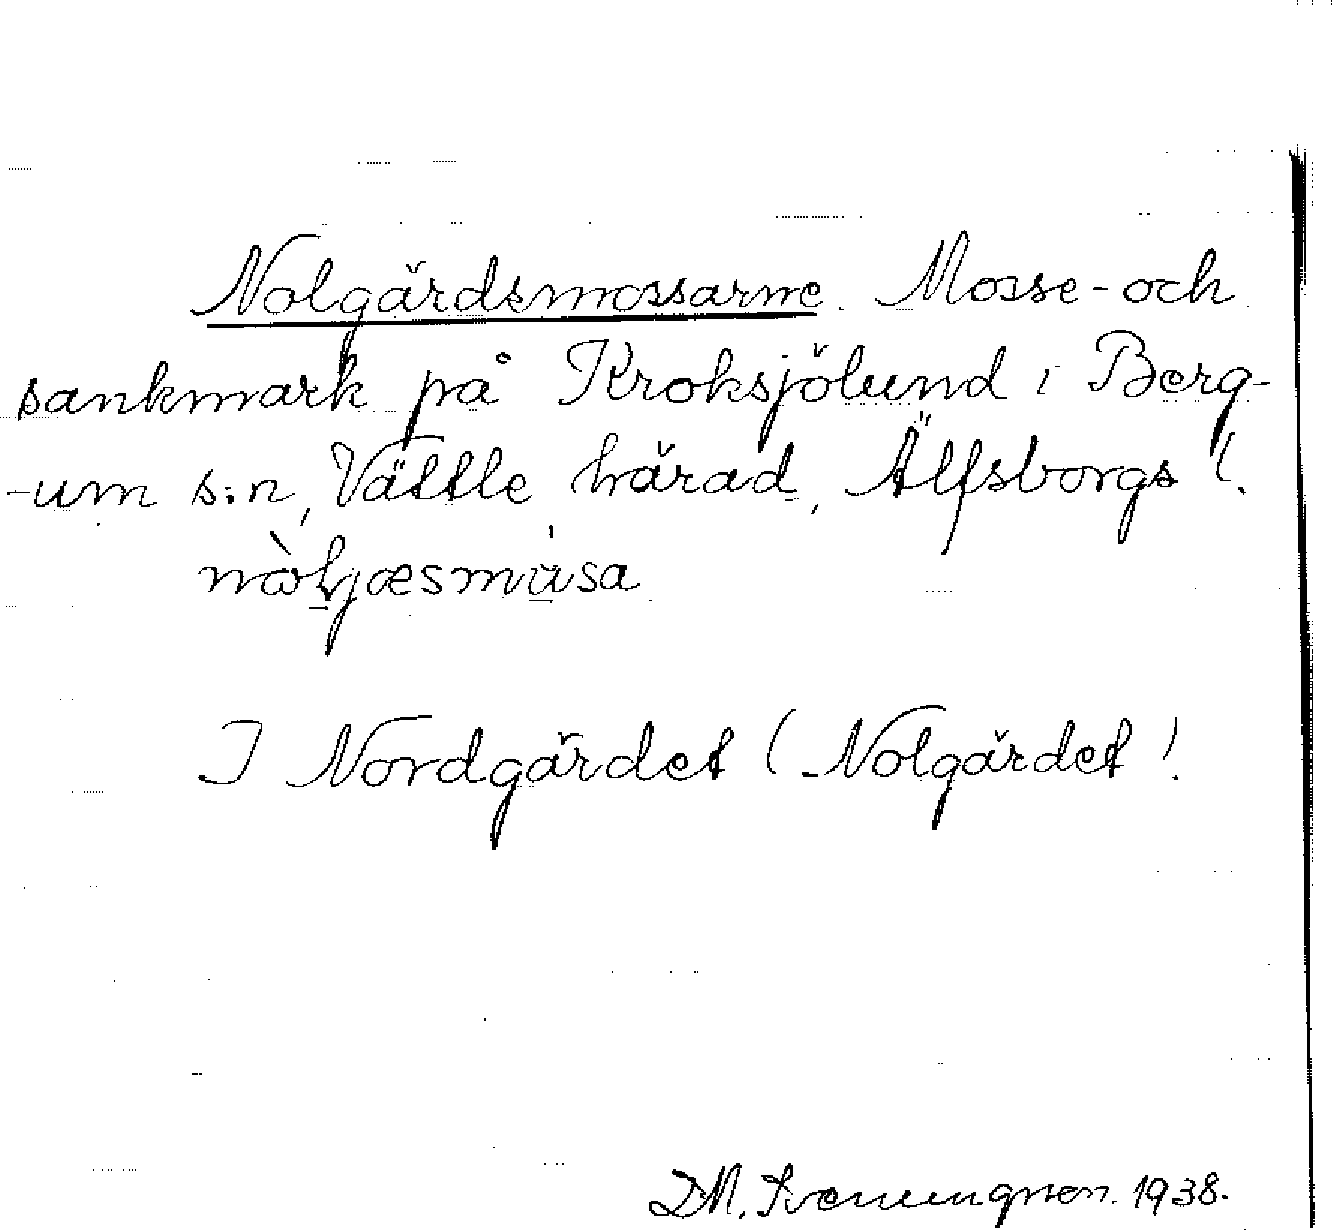 Nolgärdsmossarne. Mosse- och
sankmark på Kroksjölund i Berg-
-um s:n, Vättle härad, Älfsborgs l.
I Nordgärdet (Nolgärdet!
1938.